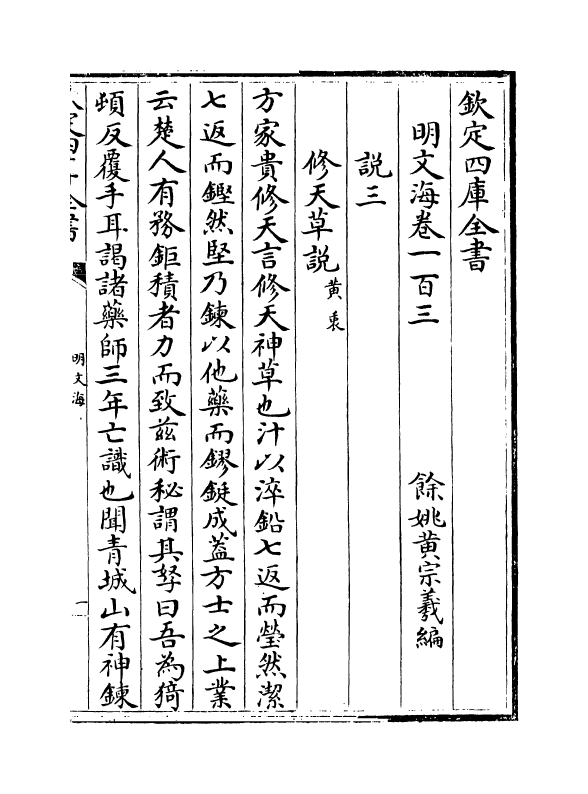 欽定四庫全書
明文海卷一百三
餘姚黄宗羲編
説三
修天草説黄衷
方家貴修天言修天神草也汁以淬鉛七返而瑩然潔
七返而鏗然堅乃鍊以他藥而鏐鋌成蓋方士之上業
云楚人有務鉅積者力而致兹術秘謂其孥曰吾為猗
頓反覆手耳謁諸藥師三年亡識也聞青城山有神鍊
明文海
一